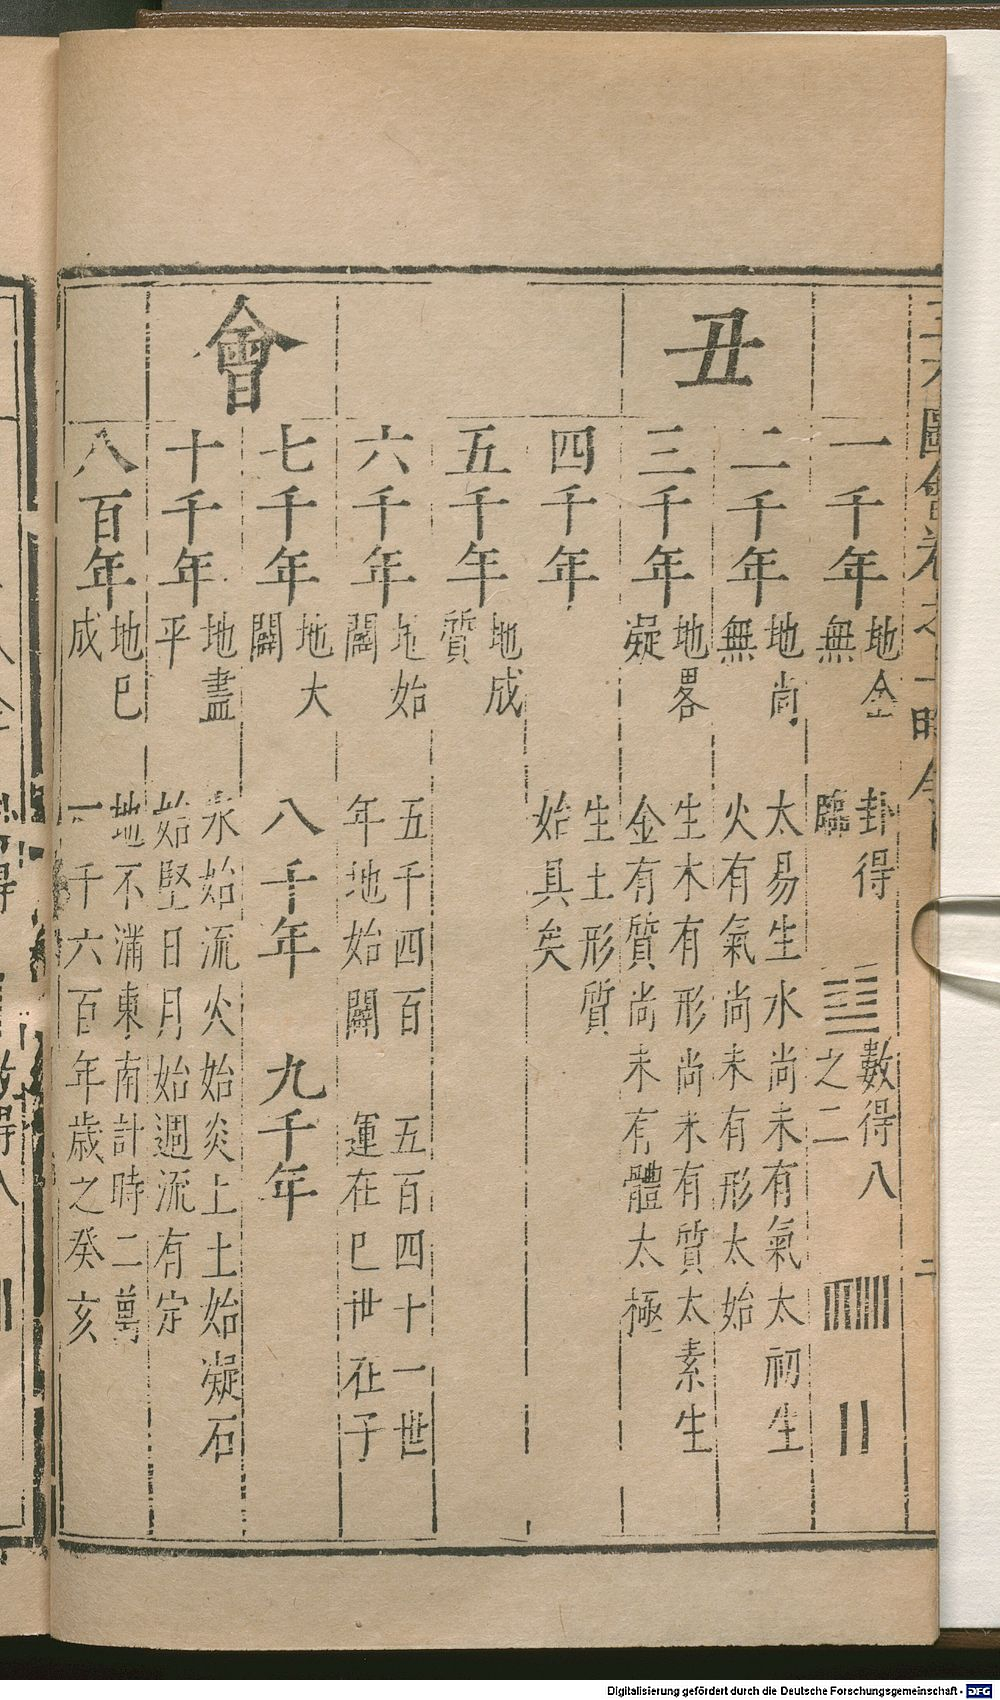 圖會卷之一時令
二
丑會
一千年
地全
無
卦得
臨
數得八
之二
二千年
地尚
無
太易生水尚未有氣太初生
火有氣尚未有形太始
三千年
地畧
凝
生木有形尚未有質太素生
金有質尚未有體太極
四千年
生土形質
始具矣
五千年
地成
質
六千年
地始
闢
五千四百
年地始闢
五百四十一世
運在巳世在子
七千年
地大
闢
八千年
九千年
十千年
地盡
平
水始流火始炎上土始凝石
始堅日月始週流有定
八百年
地已
成
地不滿東南計時二萬
一千六百年歲之癸亥
Digitalisierung gefördert durch die Deutsche Forschungsgemeinschaft - DFG